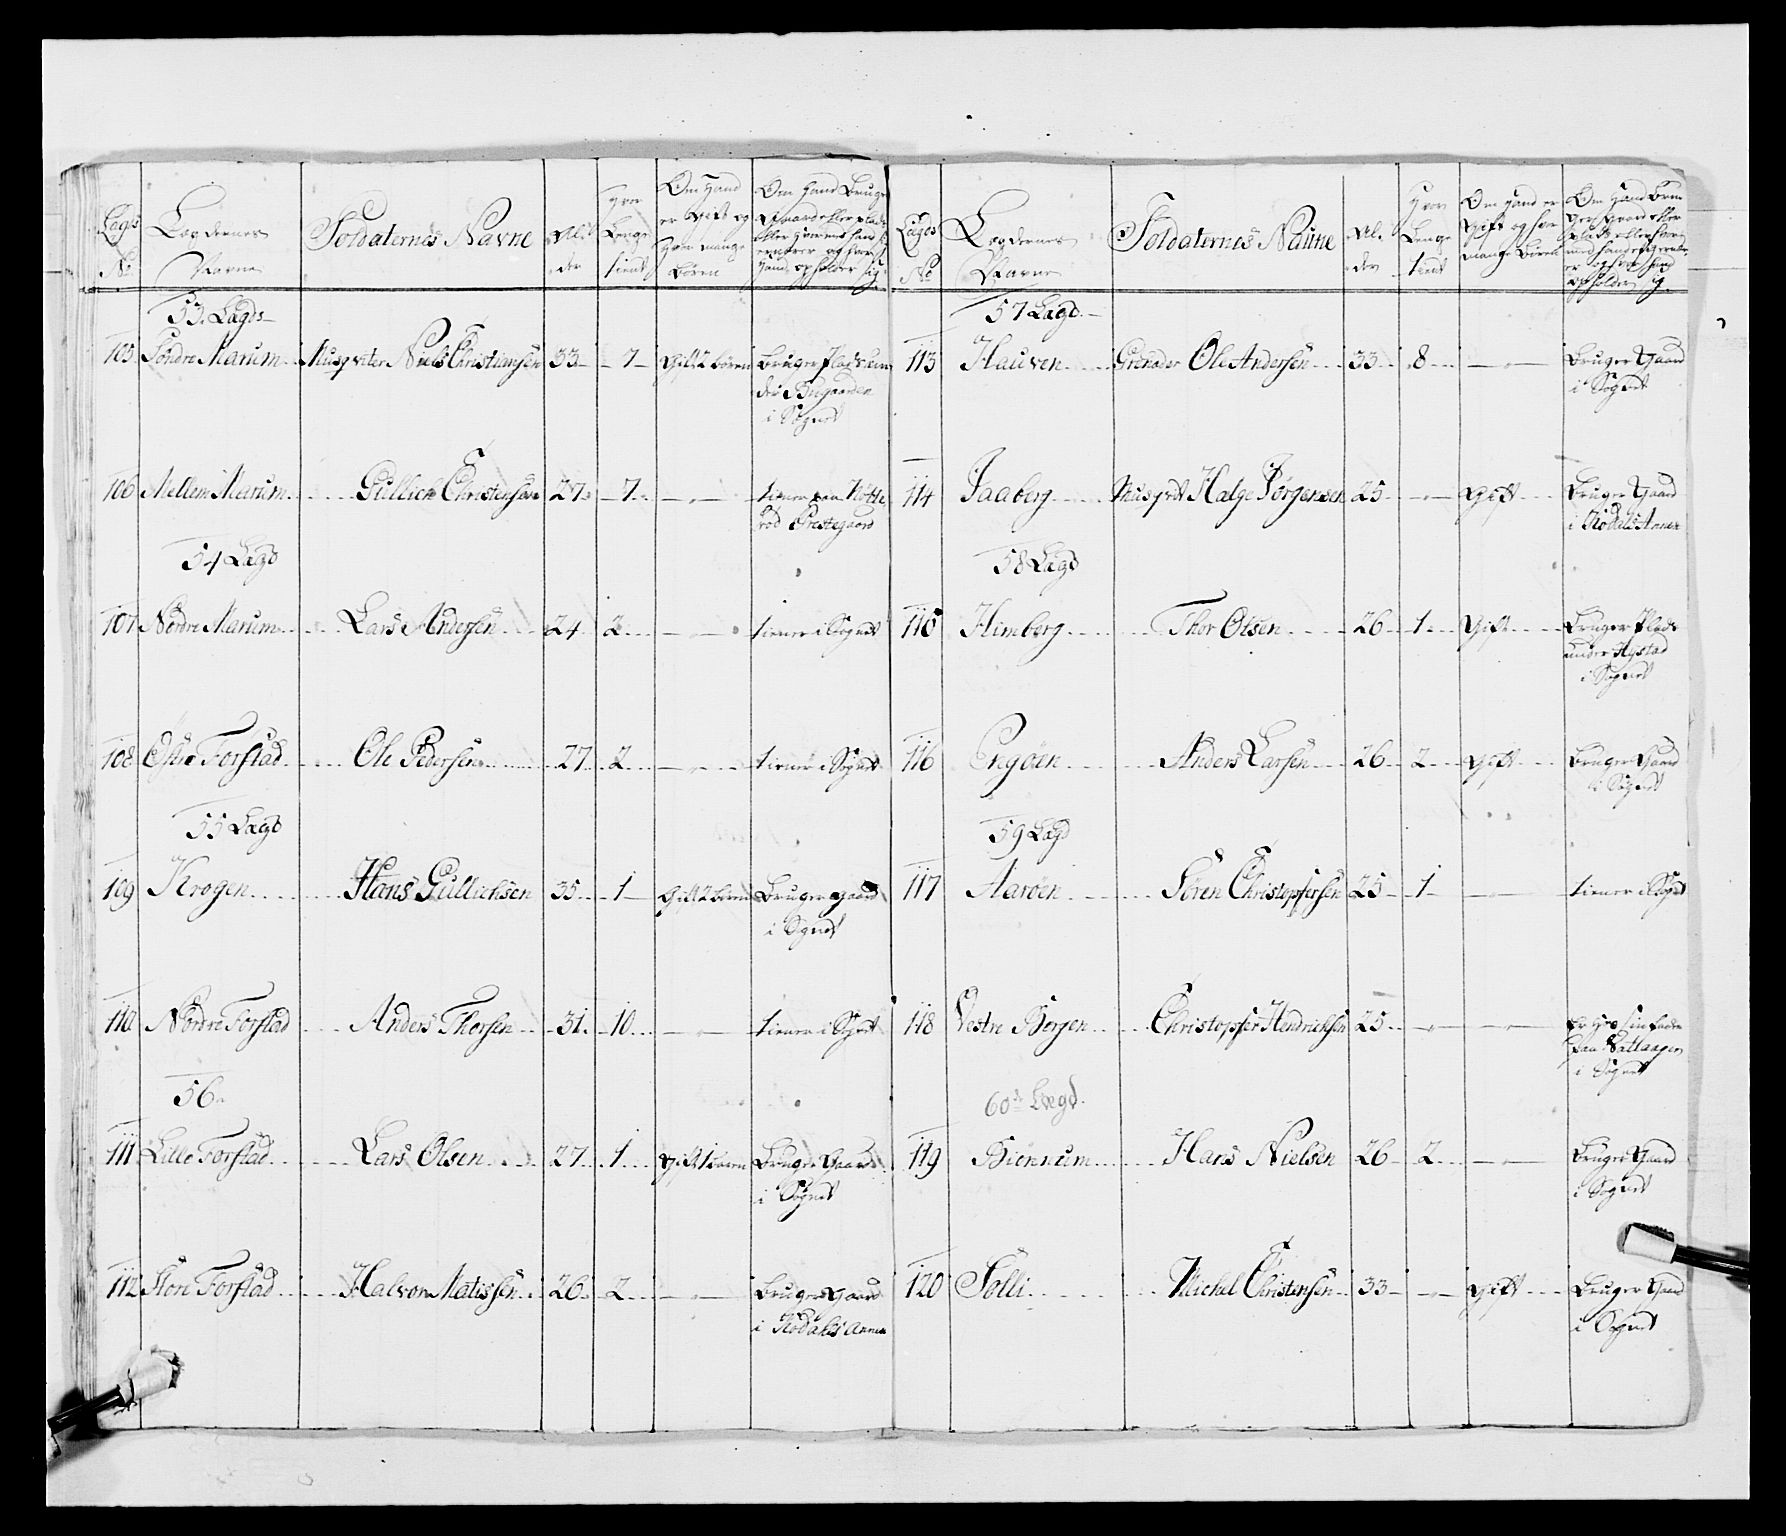 Lægs No
Lægdernes Navne
Soldaternes Navne
Al: der
Hvor Længe tient
Om Hand er Gift og Hvor mange Börn
Om Hand Bruger Gaard eller plads eller Hvormed hand sig ernærer og hvor Hand opholder sig
53. Lægd
105 Söndre Marum Musqviter Niels Christiansen 33 7 Gift 2 börn Bruger Plads un
der Brugaarden
i Sognet
106 Mellem Marum Gullich Christensen 27 7 tiener paa
Prestegaard
54 Lægd
107 Nordre Marum Lars Andersen 24 2 tiener i Sognet
108 Östre Forstad Ole Pedersen 27 2 tiener i Sognet
55 Lægd
109 Krogen Hans Gullichsen 35 1 Gift 2 börn Bruger Gaard
i Sognet
110 Nordre Forstad Anders Thorsen 31 10 tiener i Sognet
56
111 Lille Forstad Lars Olsen 27 1 Gift 1 barn Bruger Gaard
i Sognet
112 Store Forstad Halvor Matissen 26 2 Bruger Gaard
i Kodahls Annex
Lægds No
Lægdernes Navne
Soldaternes Naune
Al. der
Hvor Længe tient
Om Hand er Gift og hvor mange Börn
Om Hand Bru
ger Gaard eller
plads eller hvor
med hand sig ernær
er og hvor hand
opholder sig
57 Lægd
113 Hauven Grenader Ole Andersen 33 8 Bruger Gaard
i Sognet
114 Jaaberg Musqvt Helge Jörgensen 25 Gift Bruger Gaard
i Kodals Annex
58 Lægd
115 Himberg Thor Olsen 26 1 Gift Bruger Plads
under Nystad
i Sognet
116 Engöen Anders Larsen 26 2 Gift Bruger Gaard
i Sognet
59 Lægd
117 Aaröen Sören Christophersen 25 1 tiener i Sognet
118 Vestre Börgen Christopher Hendrichsen 25 Er hos sin fader
paa
i Sognet
60de Lægd.
119 Biönnum Hans Nielsen 26 2 Bruger Gaard
i Sognet
120 Solli Michel Christensen 33 Gift Bruger Gaard
i Sognet